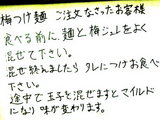 梅つけ麺 ご注文なさったお客様
食べる前に、麺と梅ジュレをよく
混ぜて下さい。
混ぜ終えましたらタレにつけお食べ
下さい。
途中で玉子を混ぜますとマイルド
になり味が変わります。